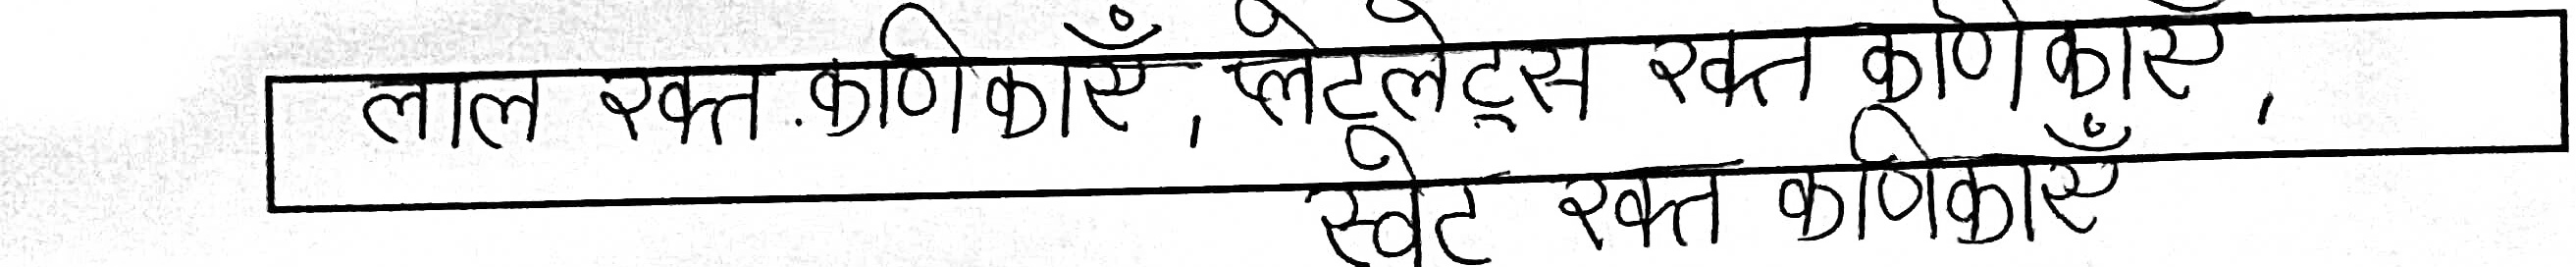 लाल रक्त कणिकाएँ, प्लेटलेट्स रक्त कणिकाएँ,
स्वेट रक्त कणिकाएँ